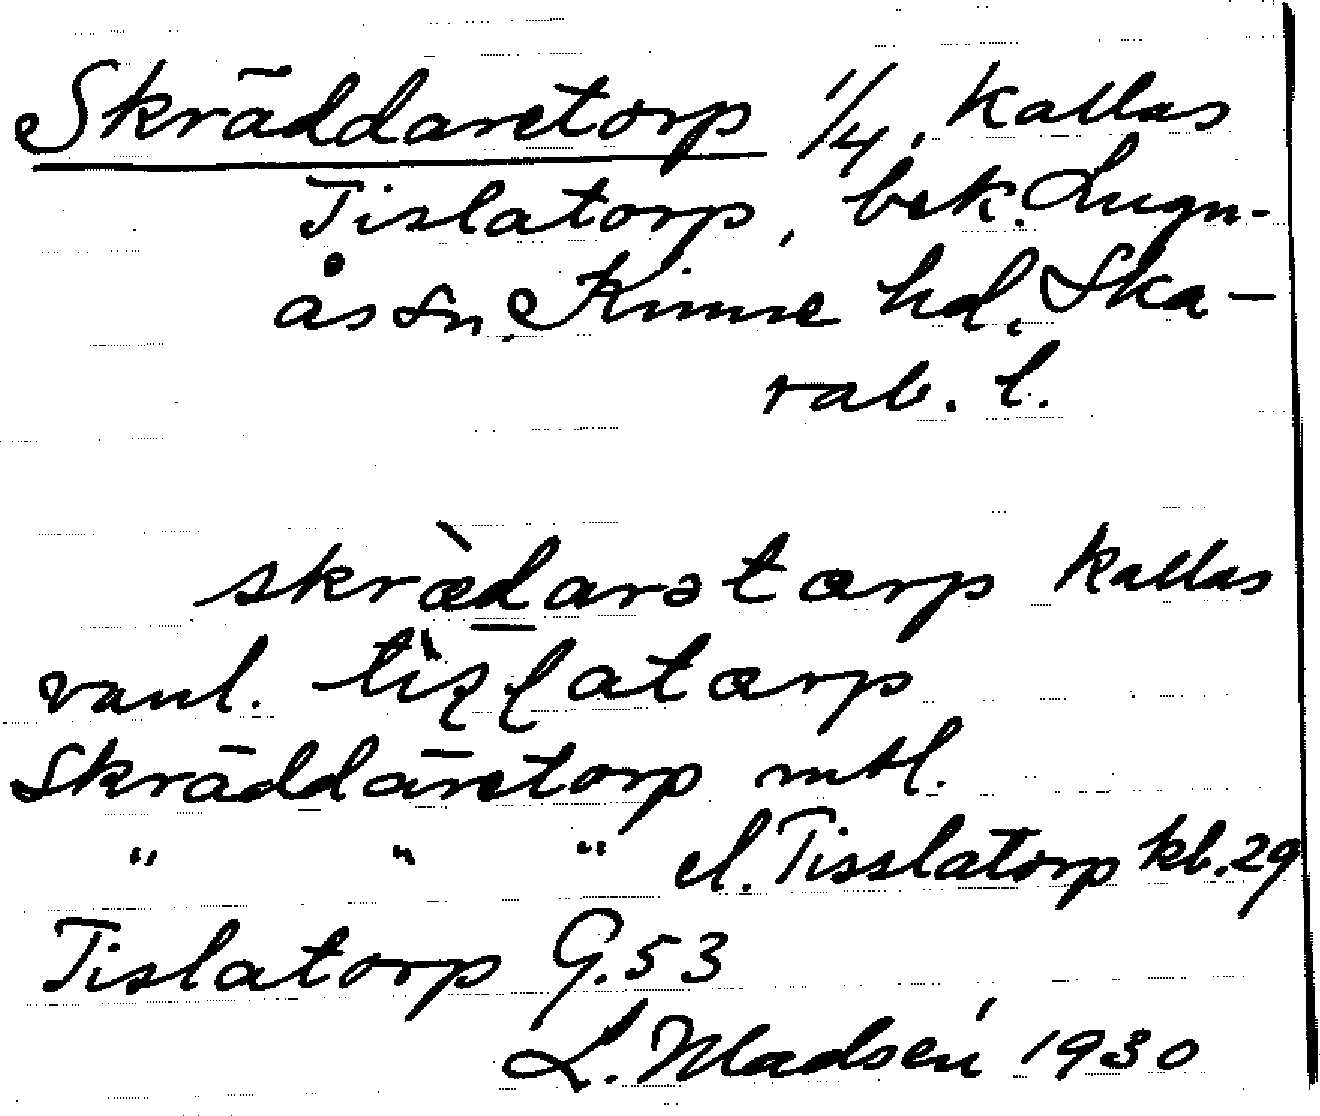 Skräddaretorp 1/4, kallas
Tislatorp, bek. Lugn-
ås sn. Kinne hd. Ska-
rab. l.
skrædarətɑrp kallas
vanl. tizlatɑrp
Skräddāretorp mtl.
" " " el. Tisslatorp kb. 29
Tislatorp G. 53
L. Madsén 1930